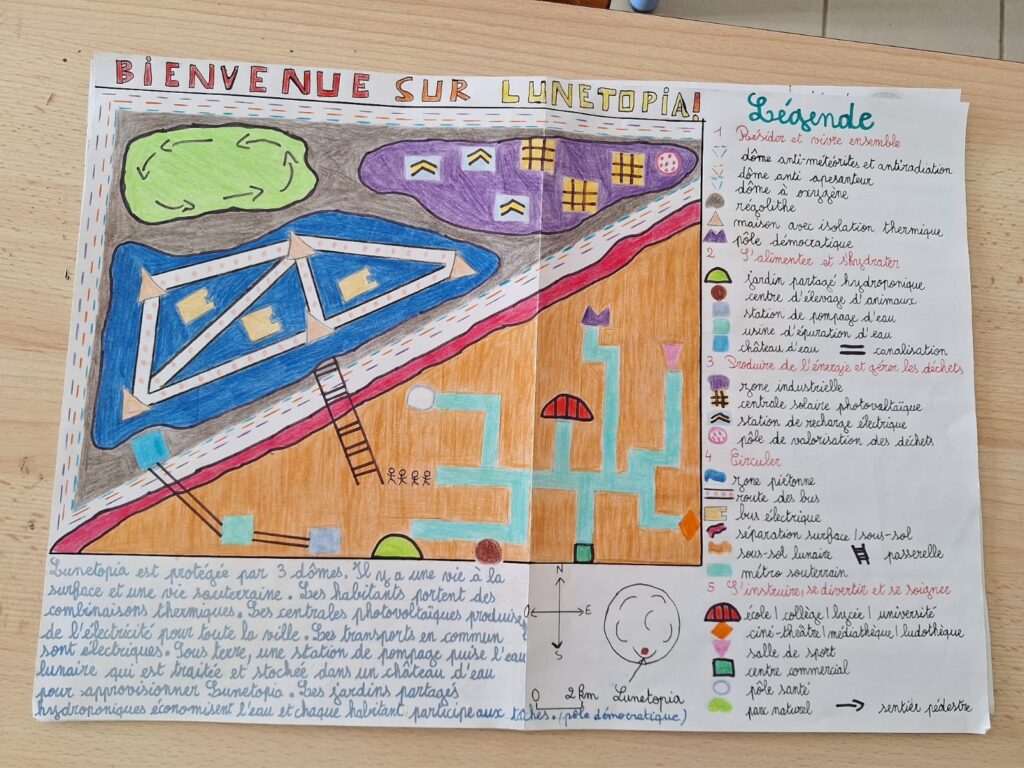 BIENVENUE SUR LUNETOPIA!
Légende
1 Résider et vivre ensemble
dôme anti-météorites et antiradiation
dôme anti apesanteur
dôme à oxygène
régolithe
maison avec isolation thermique
pôle démocratique
2 S'alimenter et s'hydrater
jardin partagé hydroponique
centre d'élevage d'animaux
station de pompage d'eau
usine d'épuration d'eau
château d'eau canalisation
3 Produire de l'énergie et gérer les déchets
zone industrielle
centrale solaire photovoltaïque
station de recharge électrique
pôle de valorisation des déchets
4 Circuler
zone piétonne
route des bus
bus électrique
séparation surface/sous-sol
sous-sol lunaire passerelle
métro souterrain
5 S'instruire, se divertir et se soigner
école/collège/lycée/université
ciné-théâtre/médiathèque/ludothèque
salle de sport
centre commercial
pôle santé
parc naturel sentier pédestre
Lunetopia est protégée par 3 dômes. Il y a une vie à la
surface et une vie souterraine. Les habitants portent des
combinaisons thermiques. Les centrales photovoltaïques produise
de l'électricité pour toute la ville. Les transports en commun
sont électriques. Sous terre, une station de pompage puise l'eau
lunaire qui est traitée et stockée dans un château d'eau
pour approvisionner Lunetopia. Les jardins partagés
hydroponiques économisent l'eau et chaque habitant participe aux tâches. (pôle démocratique)
N
O E
S
0 2 km Lunetopia